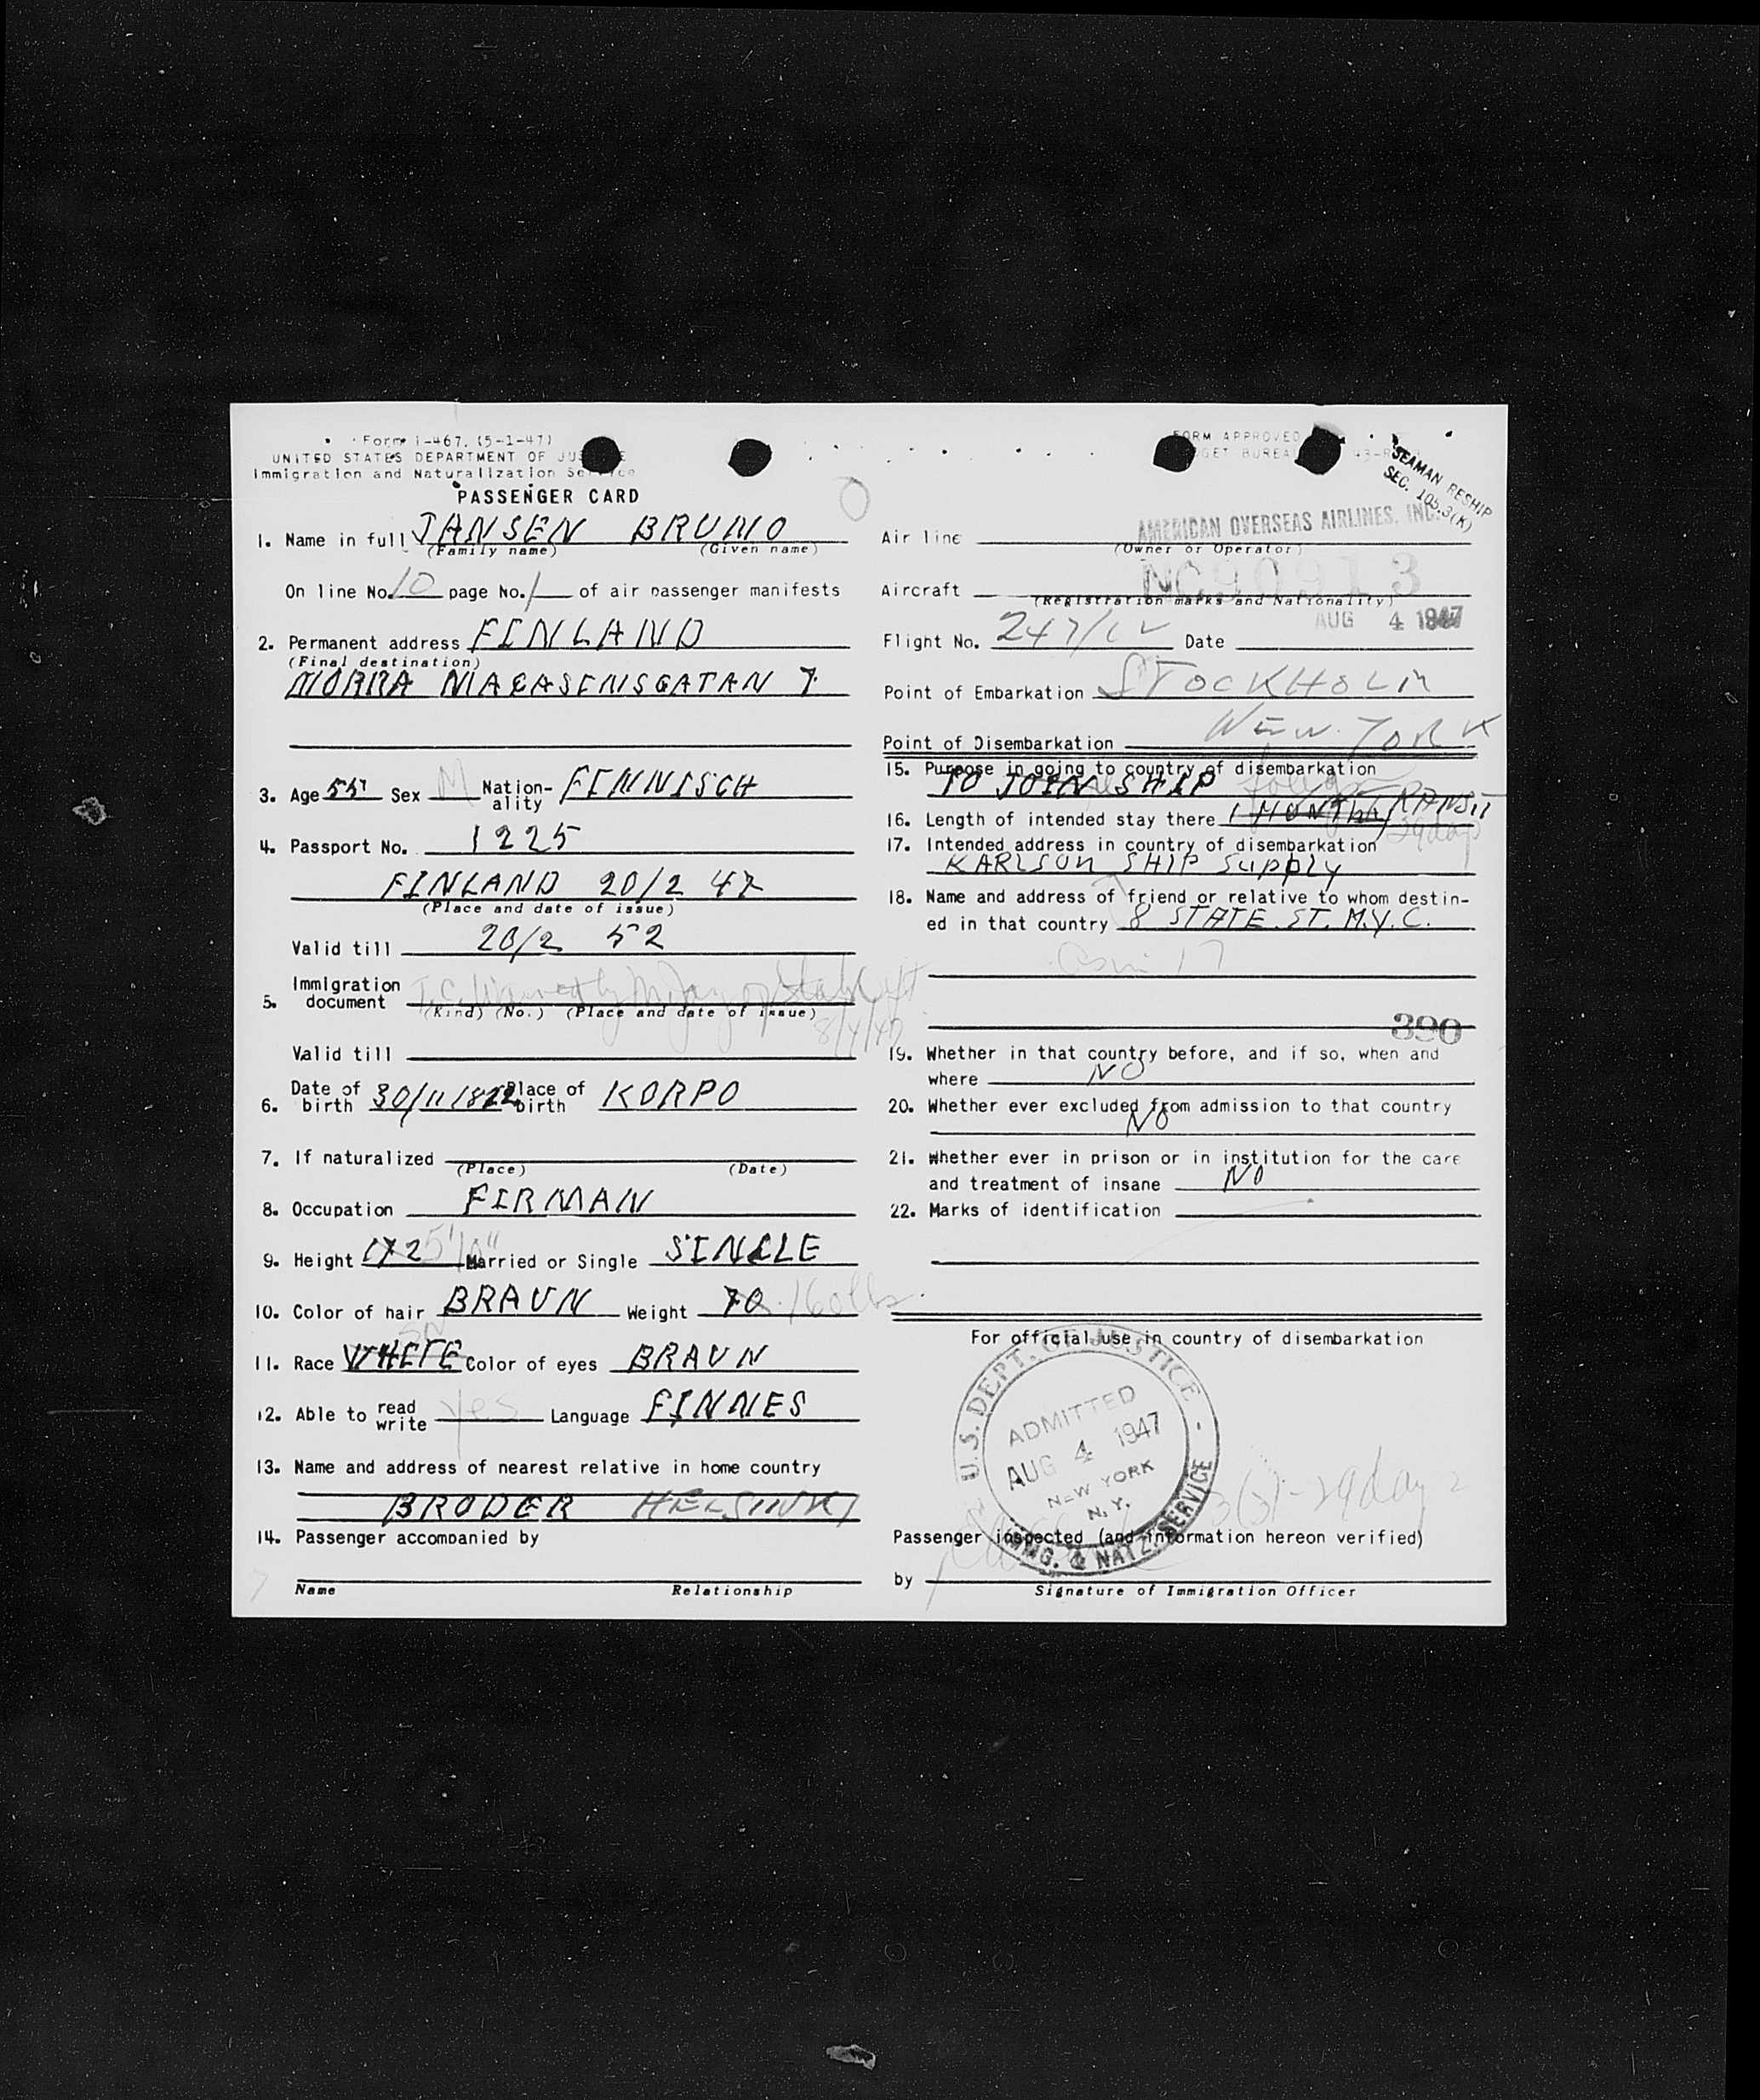 Form I-467. (5-1-47)
UNITED STATES DEPARTMENT OF JUSTICE
Immigration and Naturalization Service
PASSENGER CARD
1. Name in full JANSEN BRUNO
(Family name) (Given name)
On line No. 10 page No. 1 of air passenger manifests
2. Permanent address FINLAND
(Final destination)
NORRA MAGASINSGATAN 7
3. Age 55 Sex M Nationality FINNISCH
4. Passport No. 1225
FINLAND 20/2 47
(Place and date of issue)
Valid till 20/2 52
5. Immigration document
(Kind) (No.) (Place and date of issue)
8/4/47
Valid till
6. Date of birth 30/11/1822 Place of birth KORPO
7. If naturalized
(Place) (Date)
8. Occupation FIRMAN
9. Height 172 5'10" Married or Single SINGLE
10. Color of hair BRAUN Weight 70 160 lbs
11. Race WHITE Color of eyes BRAUN
12. Able to read write Yes Language FINNES
13. Name and address of nearest relative in home country
BRODER HELSINKI
14. Passenger accompanied by
Name Relationship
FORM APPROVED
BUDGET BUREAU 43-R
SEAMAN RESHIP
SEC. 105.3(K)
Air line AMERICAN OVERSEAS AIRLINES, INC.
(Owner or Operator)
Aircraft NC90913
(Registration marks and Nationality)
AUG 4 1947
Flight No. 247/ Date
Point of Embarkation STOCKHOLM
Point of Disembarkation NEW YORK
15. Purpose in going to country of disembarkation
TO JOIN SHIP
16. Length of intended stay there 1 MONTH TRANSIT
29 days
17. Intended address in country of disembarkation
KARLSON SHIP SUPPLY
18. Name and address of friend or relative to whom destined in that country 8 STATE ST. N.Y.C.
390
19. Whether in that country before, and if so, when and
where NO
20. Whether ever excluded from admission to that country
NO
21. Whether ever in prison or in institution for the care
and treatment of insane NO
22. Marks of identification
For official use in country of disembarkation
U.S. DEPT. OF JUSTICE
ADMITTED
AUG 4 1947
NEW YORK
N.Y.
IMMG. & NATZ. SERVICE
3(3)-29 days
Passenger inspected (and information hereon verified)
by
Signature of Immigration Officer